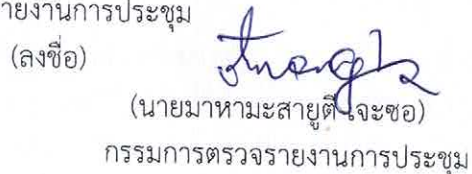 ายงานการประชุม
(ลงชื่อ)
(นายมาหามะสายูตี เจะซอ)
กรรมการตรวจรายงานการประชุม